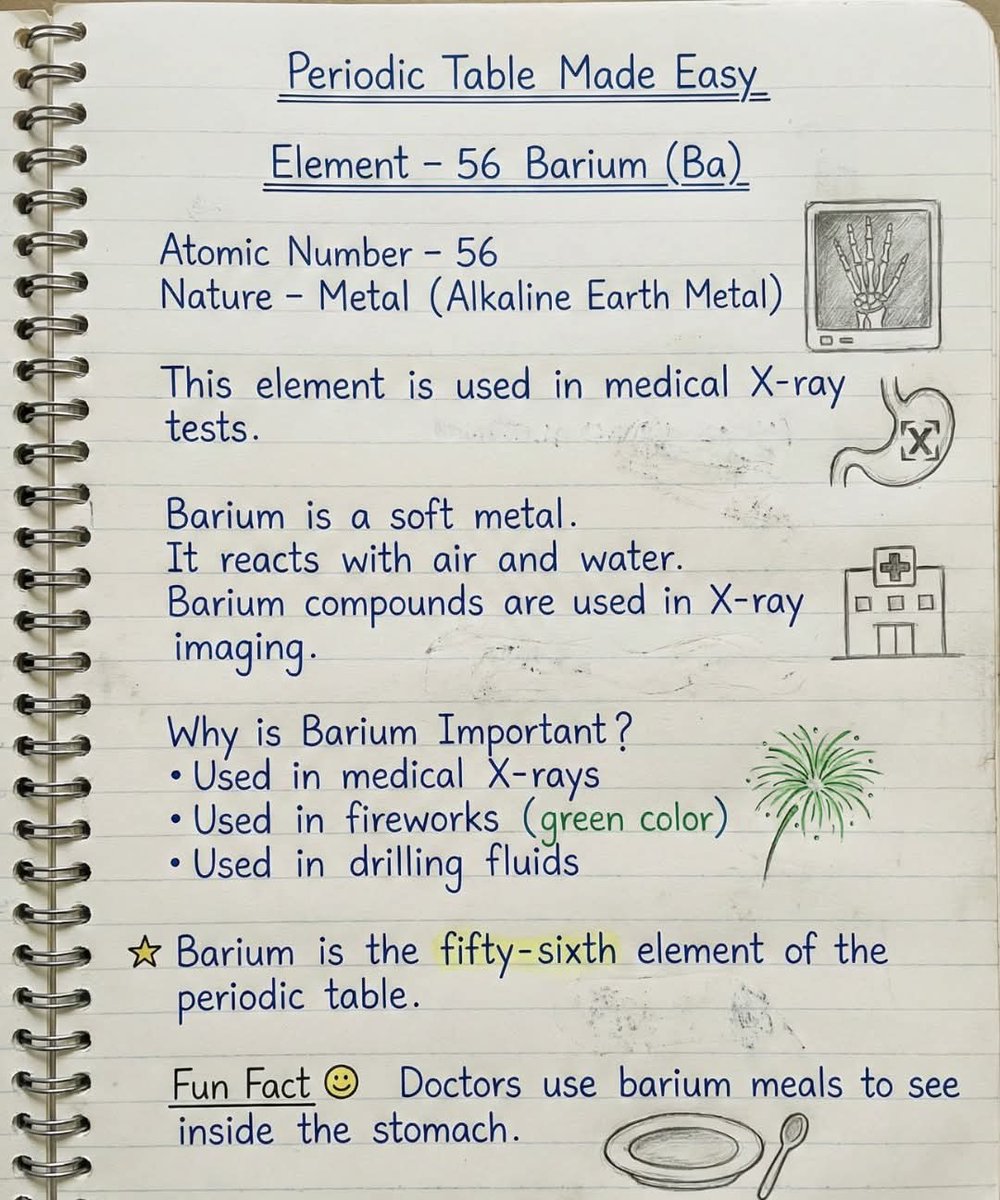 Periodic Table Made Easy
Element - 56 Barium (Ba)
Atomic Number - 56
Nature - Metal (Alkaline Earth Metal)
This element is used in medical X-ray
tests.
X
Barium is a soft metal.
It reacts with air and water.
Barium compounds are used in X-ray
imaging.
Why is Barium Important?
• Used in medical X-rays
• Used in fireworks (green color)
• Used in drilling fluids
☆ Barium is the fifty-sixth element of the
periodic table.
Fun Fact ☺ Doctors use barium meals to see
inside the stomach.